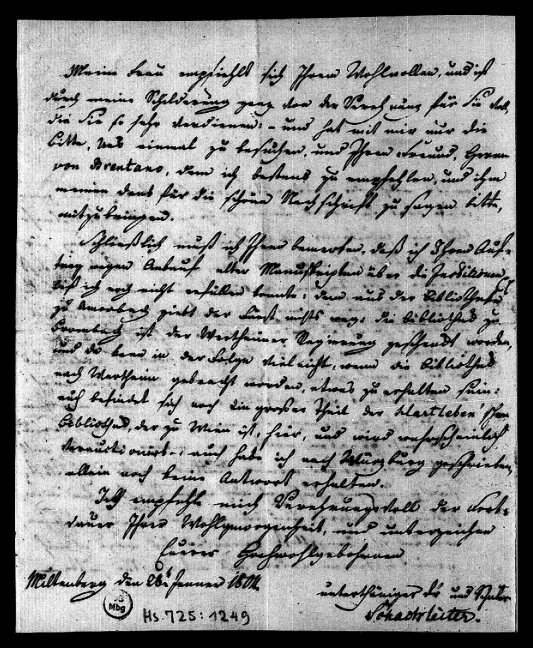 Meine Frau empfiehlt sich Ihrem Wohlwollen, und ist
durch meine Schilderung ganz von der Verehrung für Sie voll,
die Sie so sehr verdienen; – und hat mit mir nur die
Bitte, uns einmal zu besuchen, und Ihren Freund, Herrn
von Brentano, dem ich bestens zu empfehlen, und ihm
meinen Dank für die schöne Nachschrift zu sagen bitte,
mitzubringen.
Schließlich muß ich Ihnen bemerken, daß ich Ihren Auf-
trag wegen Ankauf alter Manuskripten über die
daß ich noch nicht erfüllen konnte; denn aus der Bibliotheke
zu Amorbach giebt der Fürst nichts weg; die Bibliothek zu
Bronnbach ist der Wertheimer Regierung geschenkt worden,
und da kann in der Folge vielleicht, wenn die Bibliothek
nach Wertheim gebracht worden, etwas zu erhalten sein;
auch befindet sich noch ein großer Theil der
Bibliothek, der zu Mein ist, hier, und wird wahrscheinlich
verauctionirt; auch habe ich nach Würzburg geschrieben,
allein noch keine Antwort erhalten.
Ich empfehle mich Verehrungsvoll der Fort-
dauer Ihrer Wohlgewogenheit, und unterzeichne
Eueres Hochwohlgebohren
Miltenberg den 28t Jenner 180
unterthäniger Dr und
Schachleiter.
Mbg
Hs. 725:1249